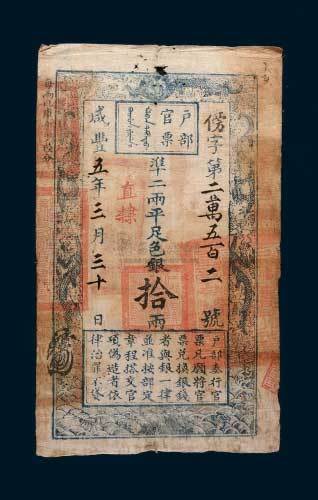 戶部
官票
傍字第二萬五百二號
準二兩平足色銀拾兩
直隸
咸豐五年三月三十日
戶部奏行官
票凡願將官
票兌換銀錢
者與銀一律
並准按部定
章程搭交官
項偽造者依
律治罪不貸